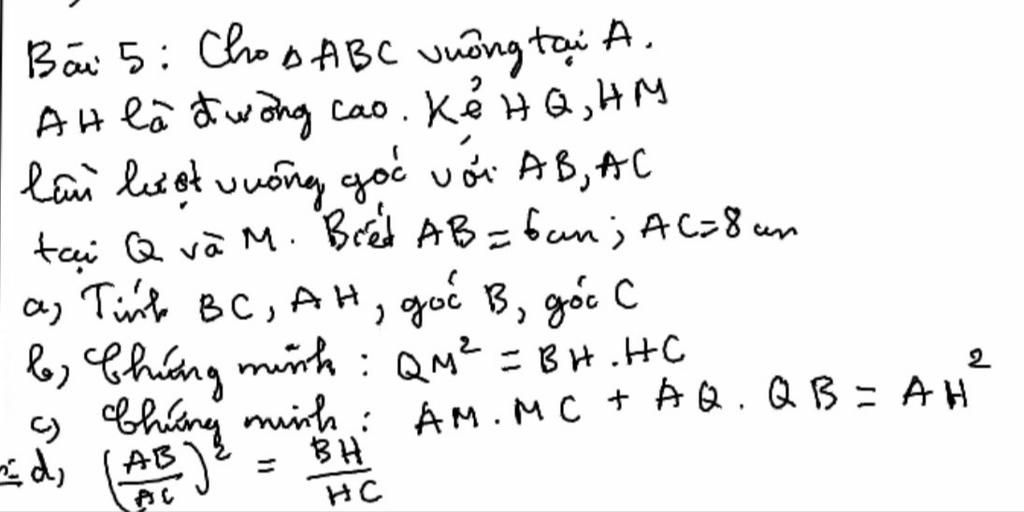 Bài 5: Cho △ABC vuông tại A.
AH là đường cao. Kẻ HQ, HM
lần lượt vuông góc với AB, AC
tại Q và M. Biết AB = 6cm; AC = 8cm
a, Tính BC, AH, góc B, góc C
b, Chứng minh: QM² = BH.HC
c, Chứng minh: AM.MC + AQ.QB = AH²
d, (AB/AC)² = BH/HC